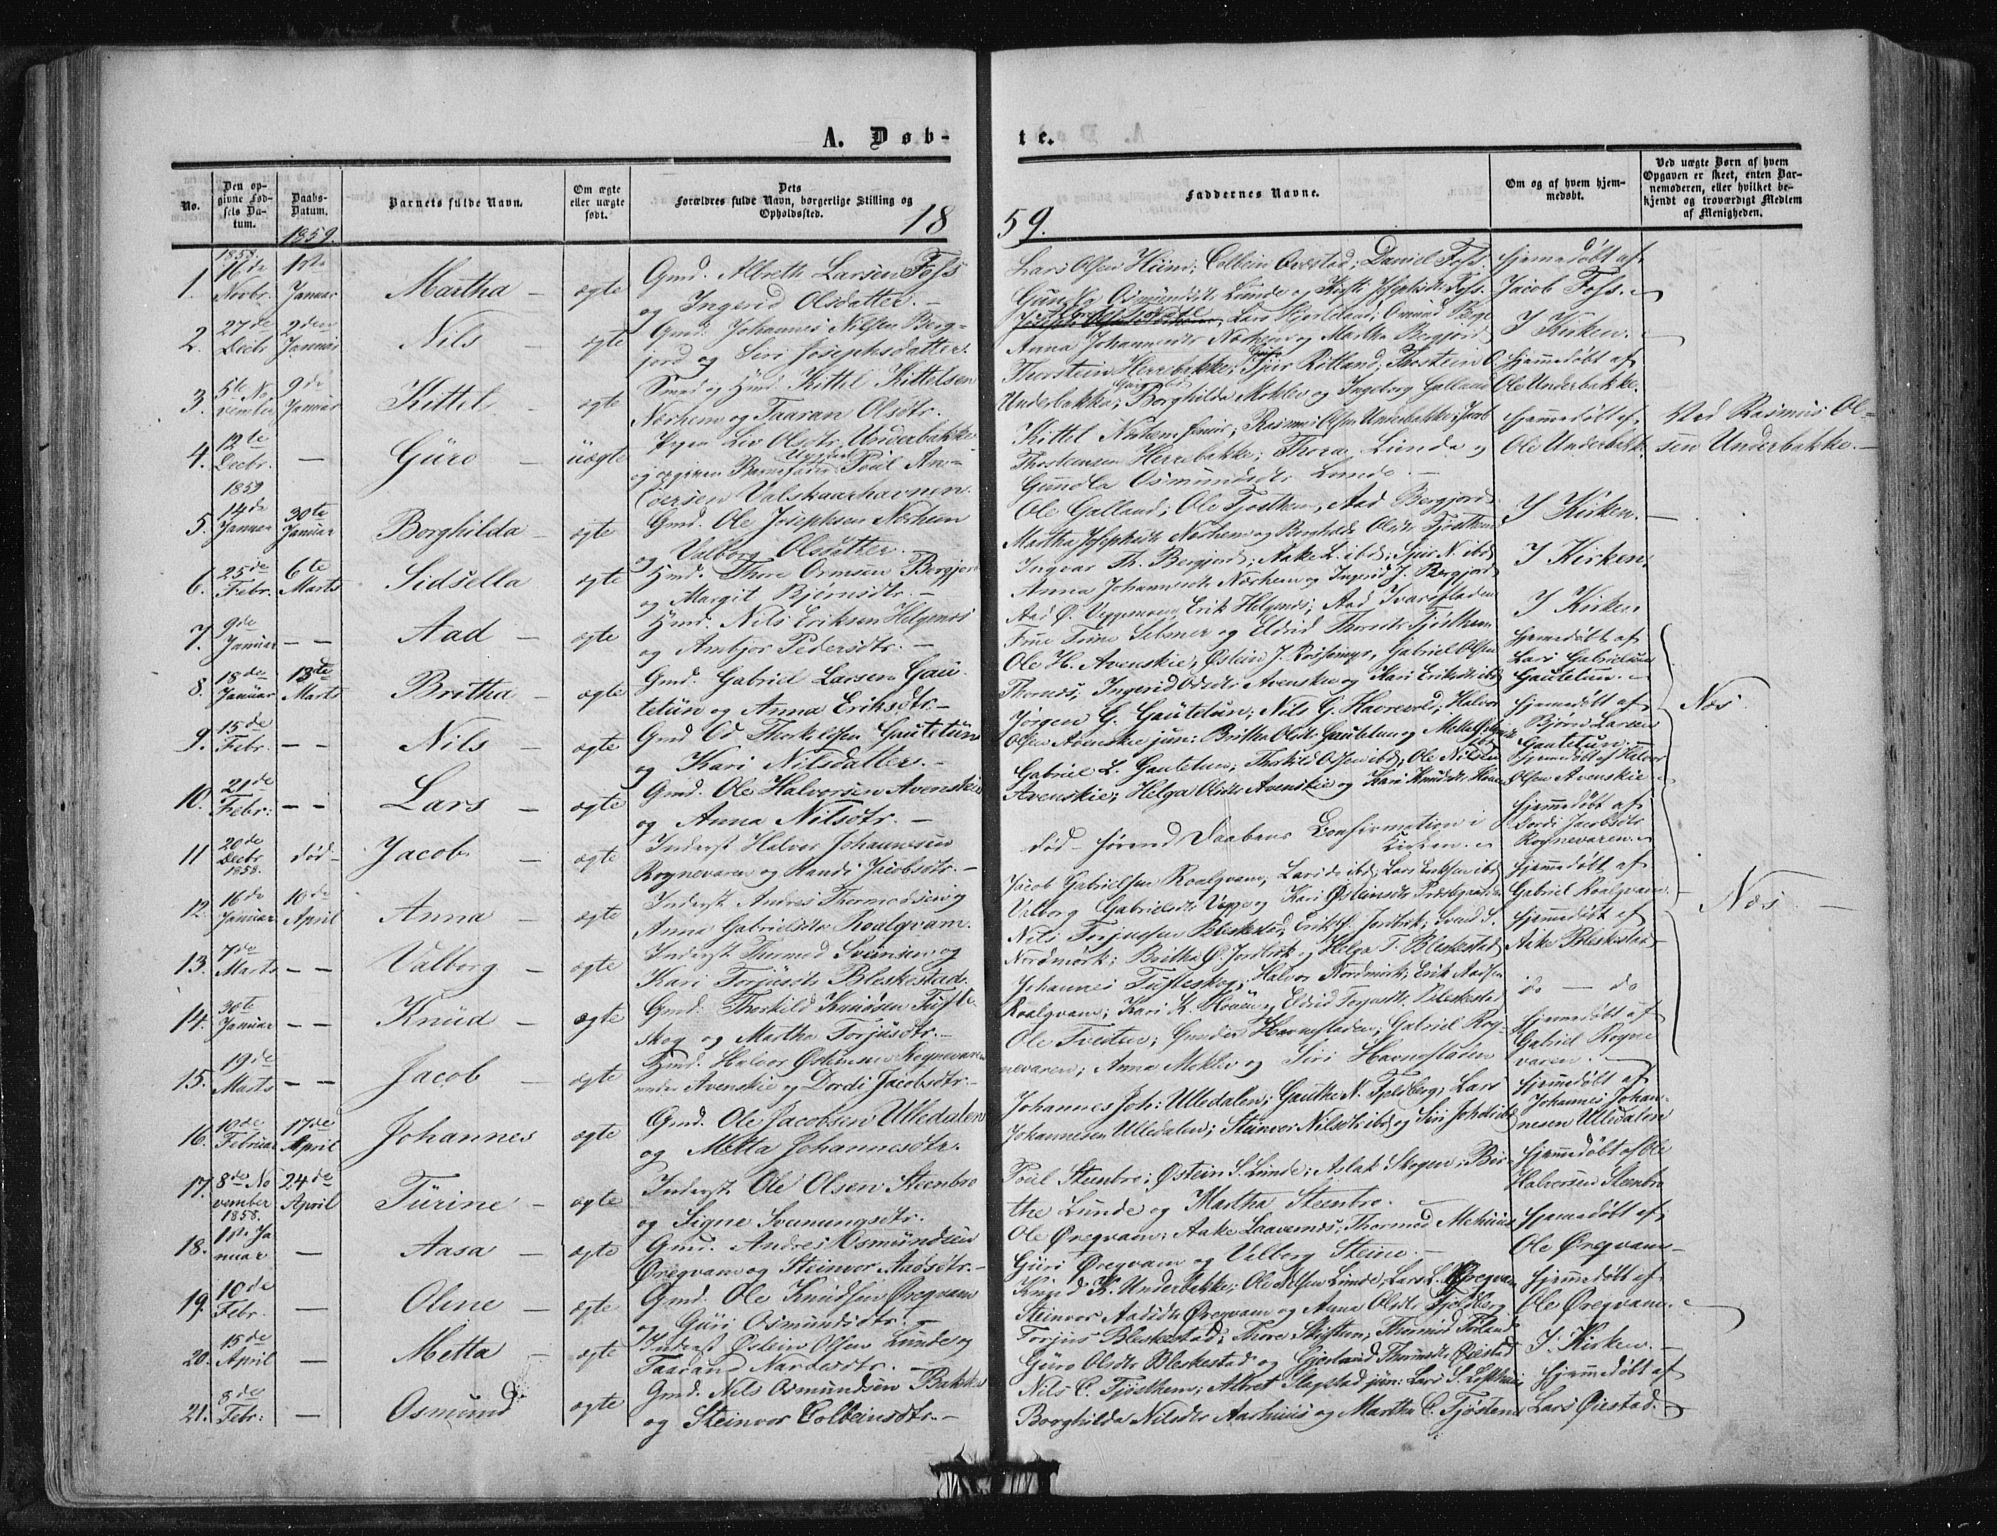 A. Døb-
te.
No.
Den op-
givne Fød-
sels Da-
tum.
Daabs-
Datum.
Barnets fulde Navn.
Om ægte
eller uægte
født.
Dets
Forældres fulde Navn, borgerlige Stilling og
Opholdssted.
Faddernes Navne.
Om og af hvem hjem-
medøbt.
Ved uægte Børn af hvem
Opgaven er skeet, enten Bar-
nemoderen, eller hvilket be-
kjendt og troværdigt Medlem
af Menigheden.
1859.
18
59.
1858.
1. 16de Novbr. 1ste Januar Martha - ægte
Gmd. Albreth Larsen Foss
og Ingerid Olsdatter. -
Lars Olsen Hiim; Colbein Øvestad; Daniel Foss
Gunla Osmundsdtr Lunde og Kirsti Josephsdtr Foss.
Hjemmedøbt af
Jacob Foss.
2. 27de Decbr. 2den Januar Nils - ægte
Gmd. Johannes Nilsen Berg-
jord og Siri Josephsdatter.
Lars Hjorteland; Omund Berg
Anna Johannesdtr Nørhem og Martha Bergjord
I Kirken.
3. 5te November 9de Januar Kittel - ægte
Smed og Hmd. Kittel Kittelsen
Nørhem og Taaran Olsdtr.
Thorstein Herrebakke; Sjur Rølland; Thorstein O
Underbakke; Borghilda Moklev og Ingeborg Galland
Hjemmedøbt af
Ole Underbakke.
4. 12te Decbr. - Guro - uægte
Pigen Liv Olsdtr. Underbakke
og opgiven Barnefader Ungkarl Poul An-
versen Valskaarhavnen
Kittel Nørhem; Rasmus Olsen Underbakke; Jacob
Thorstensen Herrebakke; Thora Lunde og
Gunla Osmundsdtr Lunde. -
Hjemmedøbt af
Ole Underbakke
Ved Rasmus Ol-
sen Underbakke. -
1859
5. 14de Januar 30te Januar Borghilda - ægte
Gmd. Ole Josephsen Nørhem
og Valborg Olsdatter.
Ole Galland; Ole Tjosthem; Aad Bergjord
Martha Josephsdtr Nørhem og Borghilda Olsdtr Tjøsthem
I Kirken.
6. 25de Febr. 6te Marts Sidsella - ægte
Hmd. Thore Ormsen Bergjord
og Margit Bjørnsdtr. -
Ingvar Th. Bergjord; Aake L. ibd; Sjur N. ibd;
Anna Johannesdtr Nørhem og Ingerid J. Bergjord
I Kirken.
7. 9de Januar - - Aad - ægte
Hmd. Nils Eriksen Helgenes
og Ambjør Pedersdtr. -
Aad Ø. Veggemoen; Erik Helgenes; Aad Ivarsfladen
Frue Trine Selmer og Eldrid Thorsdtr Tjøsthem
I Kirken
8. 18de Januar 13te Marts Britha - ægte
Gmd. Gabriel Larsen Gau-
tetun og Anna Eriksdtr. -
Ole H. Avenskie; Østein J. Røsmyr, Gabriel Olsen
Thornes, Ingerid Oddsdtr Avenskie og Kari Eriksdtr ibd
Hjemmedøbt af
Lars Gabrielsen
Gautetun.
9. 15de Febr. - - Nils - ægte
Gmd. Od Thorkelsen Gautetun
og Kari Nilsdatter. -
Jørgen G. Gautetun; Nils G. Havrevold; Halvor
Olsen Avenskie jun: Britha Olsdtr Gautetun og Metta
Hjemmedøbt af
Bjørn Larsen
Gautetun.
Næs.
10. 21de Febr. - - Lars - ægte
Gmd. Ole Halvorsen Avenskie
og Anna Nilsdtr. -
Gabriel L. Gautetun; Thorkild Olsen ibd; Ole Nilsen
Avenskie; Helga Olsdtr Avenskie og Kari Knudsdtr Houen
Hjemmedøbt af Halvor
Olsen Avenskie
11. 20de Decbr 1858. død - Jacob - ægte
Inderst Halvor Johannesen
Rognevaren og Randi Jacobsdtr. -
død - førend Daabens Confirmation i
Kirken.
Hjemmedøbt af
Dordi Jacobsdtr
Rognevaren.
12. 16de Januar 10de April Anna - ægte
Inderst Andres Thormodsen og
Anna Gabrielsdtr Roalqvam.
Jacob Gabrielsen Roalqvam; Lars ds ibd; Lars Eriksen ibd
Valborg Gabrielsdtr Vegge og Kari Østeinsdtr
Hjemmedøbt af
Gabriel Roalqvam.
Næs. -
13. 7de Marts - - Valborg - ægte
Inderst Thormod Svensen og
Kari Torjusdtr. Bleskestad. -
Nils Torjussen Bleskestad; Erik Ø. Jordbrek; Svend S.
Nordmork; Britha Ø. Jordbrek og Helga T. Bleskestad
Hjemmedøbt af
Aake Bleskestad
14. 30te Januar - - Knud - ægte
Gmd. Thorkild Knudsen Tufte-
skog og Martha Torjusdtr. -
Johannes Tufteskog; Halvor Nordmork; Erik Aadsen
Roalqvam; Kari K. Houen og Eldrid Torjusdtr. Bleskestad
do - do
15. 19de Marts - - Jacob - ægte
Hmd. Halvor Østeinsen Rognevaren
under Avenskie og Dordi Jacobsdtr. -
Ole Tveiten; Gunder Havnestaden; Gabriel Rog-
nevaren; Anna Moklev og Siri Havnestaden
Hjemmedøbt af
Gabriel Rogne
varen.
16. 10de Februar 17de April Johannes ægte
Gmd. Ole Jacobsen Ulledalen
og Metta Johannesdtr.
Johannes Joh: Ulledalen; Gauthe N. Fjeldberg; Lars
Johannesen Ulledalen; Steinvor Nilsdtr ibd og Siri Johdtr ibd
Hjemmedøbt af
Johannes Johan-
nesen Ulledalen
17. 8de November 1858. 24de April Turine - ægte
Inderst Ole Olsen Stenbro
og Signe Svenungsdtr. -
Poul Steinbro; Østein S. Lunde; Aslak Skogen; Bri-
the Lunde og Martha Steenbro.
Hjemmedøbt af Ole
Halvorsen Steenbro
18. 1ste Januar - Aasa - ægte
Gmd. Andres Osmundsen
Øregvam og Steinvor Aadsdtr. -
Ole Øregvam; Aake Laavernes; Thormod Mehuus
Guri Øregvam og Valborg Steine. -
Hjemmedøbt af
Ole Øregvam -
19. 10de Febr. - Oline - ægte
Gmd. Ole Knudsen Øregvam
og Guri Osmundsdtr. -
Knud K. Underbakke; Ole Nilsen Lunde, Lars L. Øregvam
Steinvor Aadsdtr Øregvam og Anna Olsdtr Fjeldberg
Hjemmedøbt af
Ole Øregvam.
20. 15de April - Metta - ægte
Inderst Østein Olsen Lunde og
Taaran Aandersdtr. -
Torjus Bleskestad; Thore Skiftun; Thormod
Guro Olsdtr Bleskestad og Gjertrud Thormodsdtr Øvestad
I Kirken -
21. 3de Febr. - Osmund ægte
Gmd. Nils Osmundsen Bakke
og Steinvor Colbeinsdtr. -
Nils C. Tjøsthem; Albret Slagstad jun: Lars S. Lofthuus
Borghilda Nilsdtr Aarhuus og Martha C. Tjøsthem
Hjemmedøbt af
Lars Øiestad.